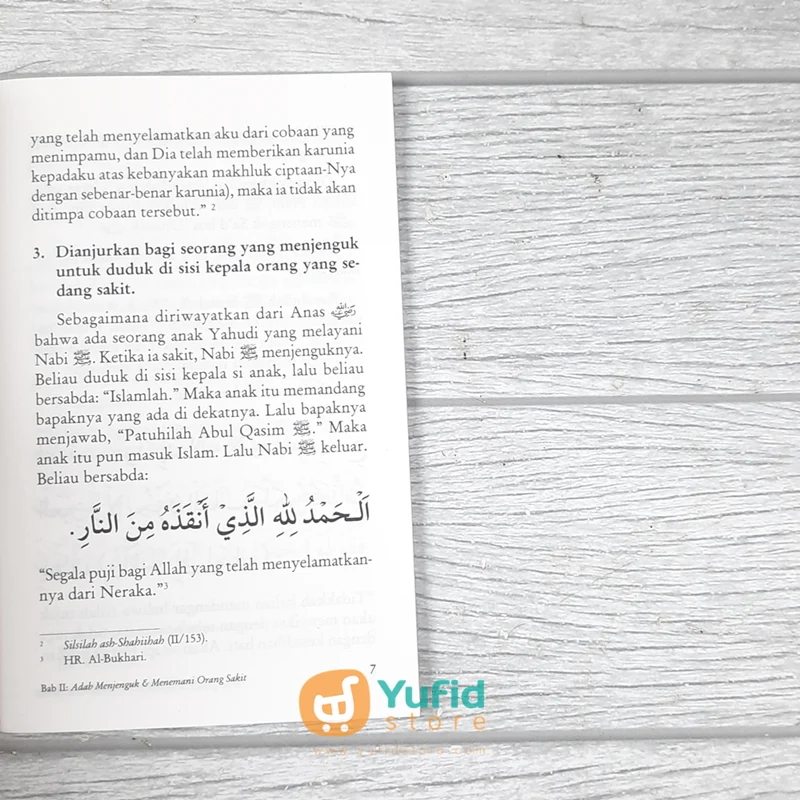 yang telah menyelamatkan aku dari cobaan yang
menimpamu, dan Dia telah memberikan karunia
kepadaku atas kebanyakan makhluk ciptaan-Nya
dengan sebenar-benar karunia), maka ia tidak akan
ditimpa cobaan tersebut.” 2
3. Dianjurkan bagi seorang yang menjenguk
untuk duduk di sisi kepala orang yang se-
dang sakit.
Sebagaimana diriwayatkan dari Anas
bahwa ada seorang anak Yahudi yang melayani
Nabi ﷺ. Ketika ia sakit, Nabi ﷺ menjenguknya.
Beliau duduk di sisi kepala si anak, lalu beliau
bersabda: “Islamlah.” Maka anak itu memandang
bapaknya yang ada di dekatnya. Lalu bapaknya
menjawab, “Patuhilah Abul Qasim ﷺ.” Maka
anak itu pun masuk Islam. Lalu Nabi ﷺ keluar.
Beliau bersabda:
اَلْحَمْدُ لِلّٰهِ الَّذِيْ أَنْقَذَهُ مِنَ النَّارِ.
“Segala puji bagi Allah yang telah menyelamatkan-
nya dari Neraka.”3
2 Silsilah ash-Shahiihah (II/153).
3 HR. Al-Bukhari.
7
Bab II: Adab Menjenguk & Menemani Orang Sakit
Yufid
store
www.yufidstore.com